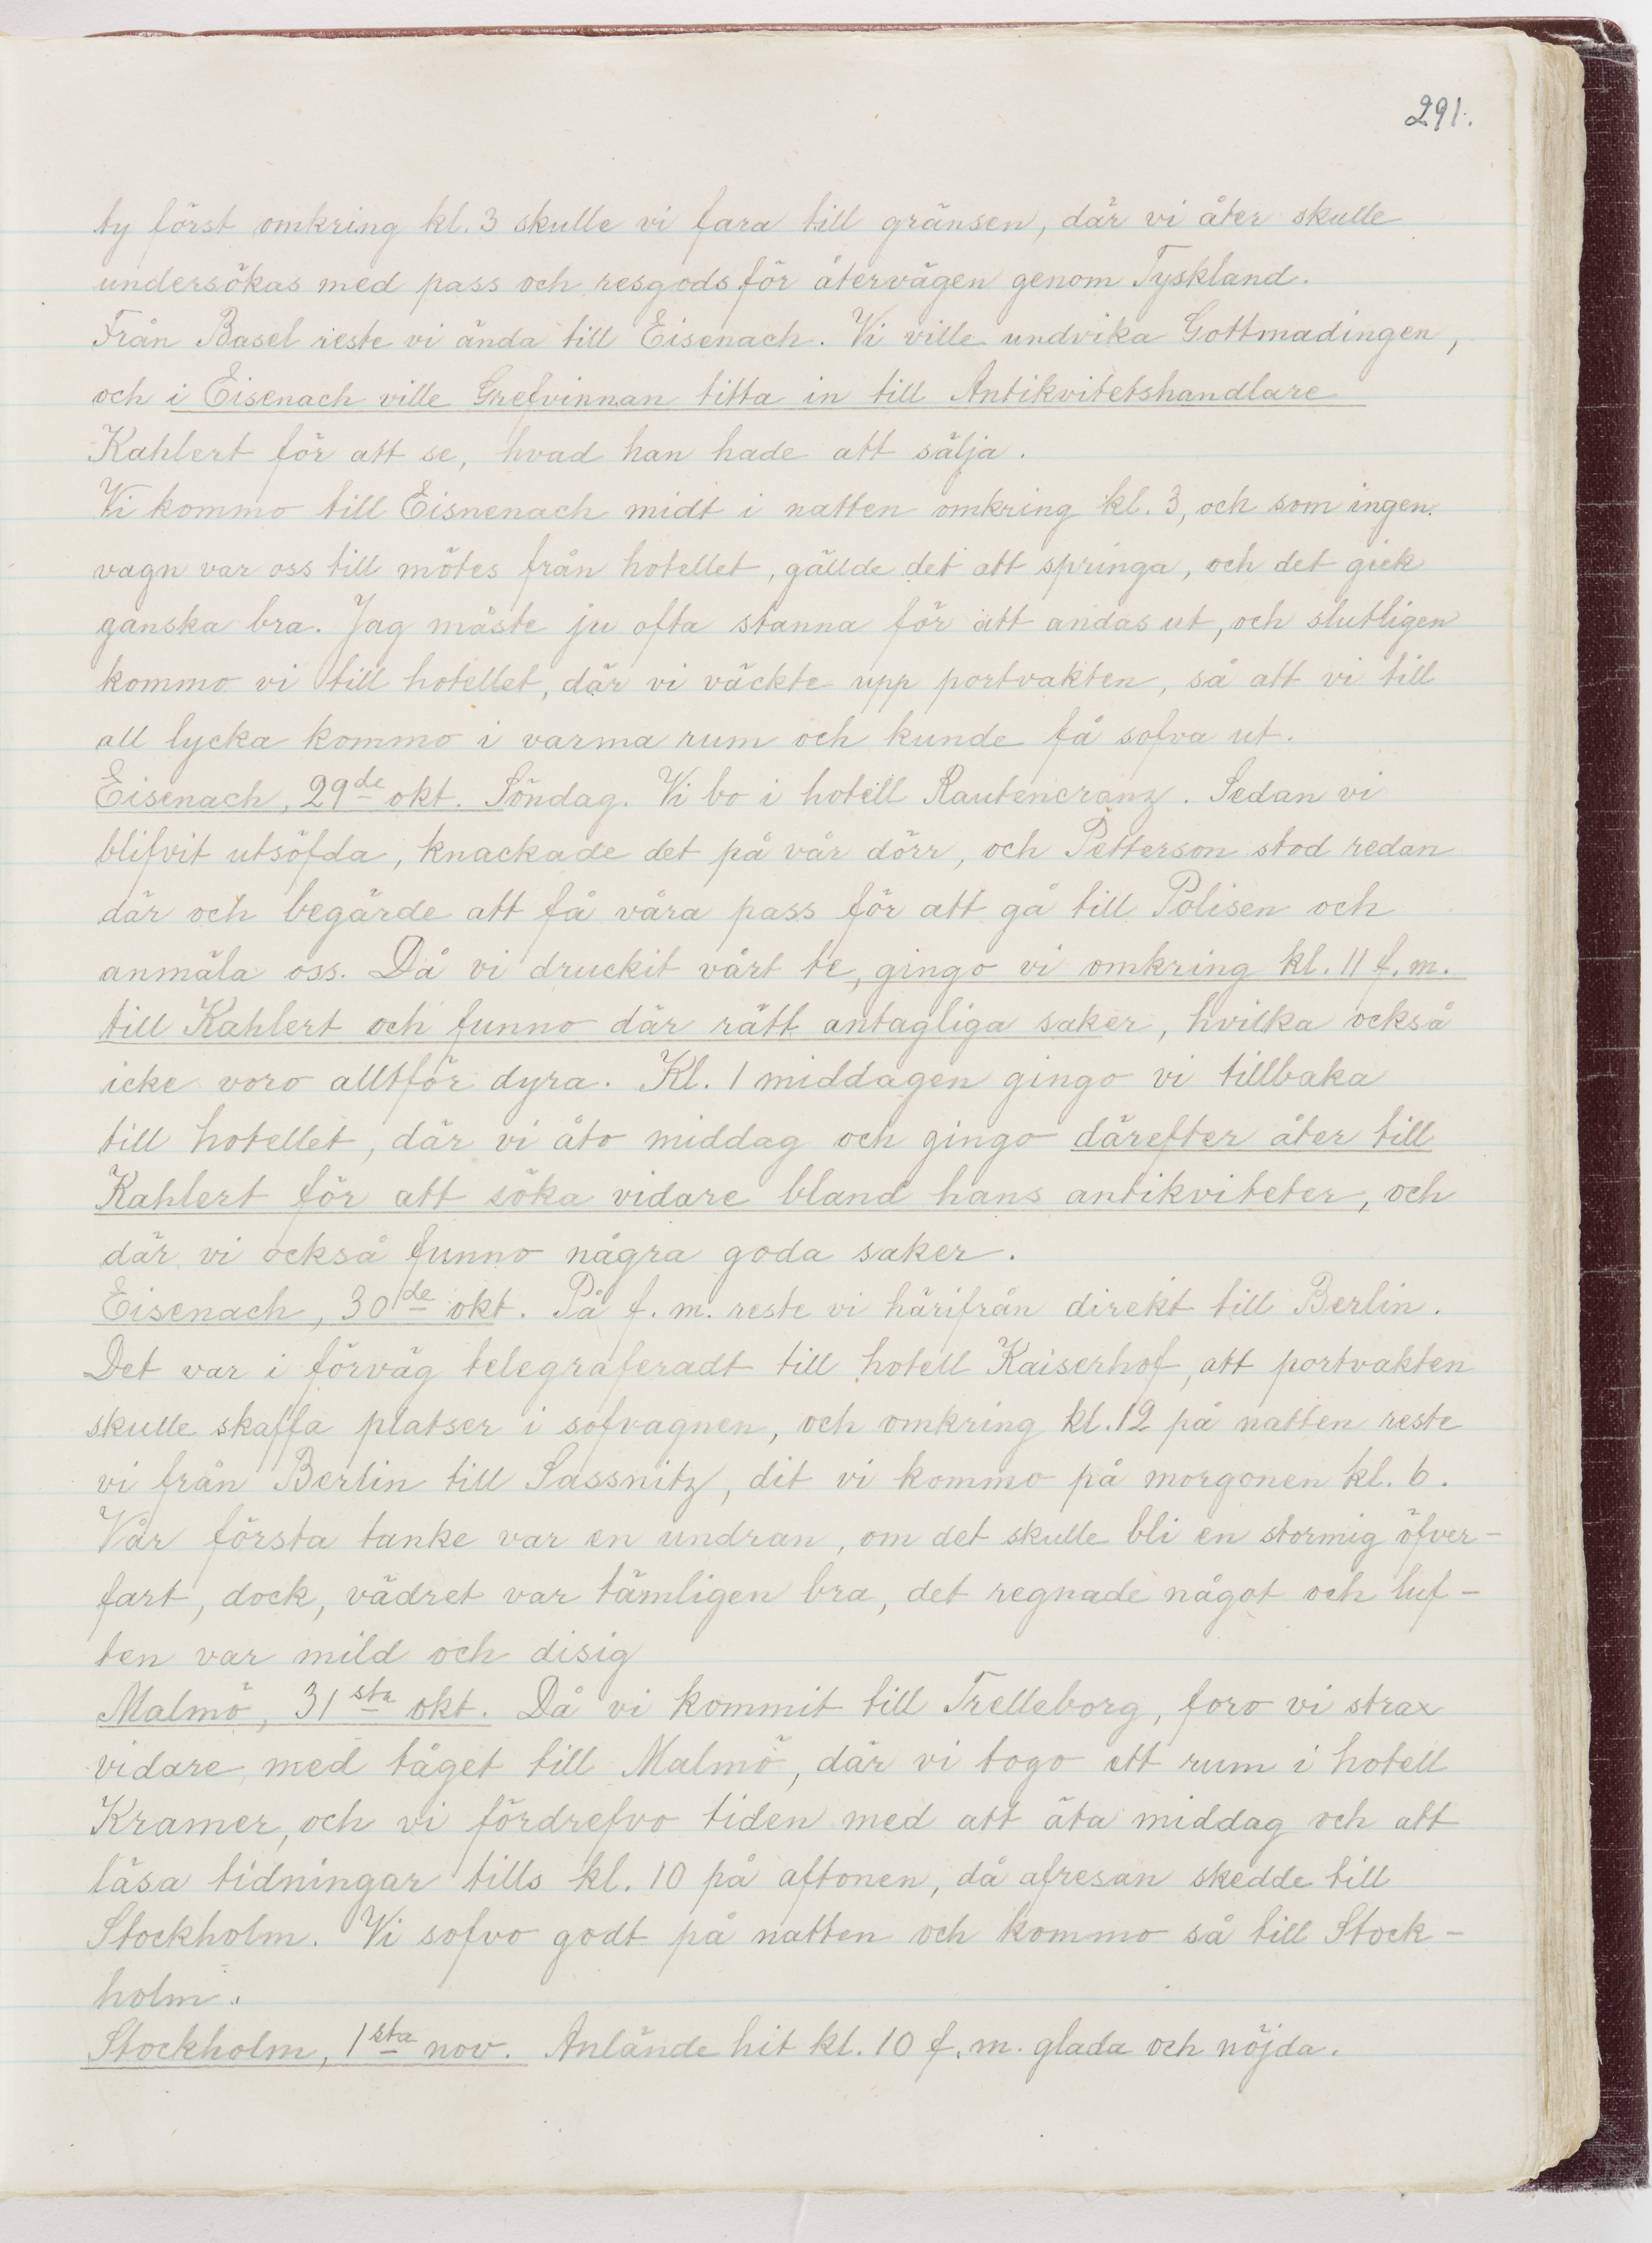 291.
ty först omkring kl. 3 skulle vi fara till gränsen, där vi åter skulle
undersökas med pass och resgods för återvägen genom Tyskland.
Från Basel reste vi ända till Eisenach. Vi ville undvika Gottmadingen,
och i Eisenach ville Grefvinnan titta in till Antikvitetshandlare
Kahlert för att se, hvad han hade att sälja.
Vi kommo till Eisnenach midt i natten omkring kl. 3, och som ingen
vagn var oss till mötes från hotellet, gällde det att springa, och det gick
ganska bra. Jag måste ju ofta stanna för att andas ut, och slutligen
kommo vi till hotellet, där vi väckte upp portvakten, så att vi till
all lycka kommo i varma rum och kunde få sofva ut.
Eisenach, 29de okt. Söndag. Vi bo i hotell Rautencranz. Sedan vi
blifvit utsöfda, knackade det på vår dörr, och Petterson stod redan
där och begärde att få våra pass för att gå till Polisen och
anmäla oss. Då vi druckit vårt te, gingo vi omkring kl. 11 f. m.
till Kahlert och funno där rätt antagliga saker, hvilka också
icke voro alltför dyra. Kl. 1 middagen gingo vi tillbaka
till hotellet, där vi åto middag och gingo därefter åter till
Kahlert för att söka vidare bland hans antikviteter, och
där vi också funno några goda saker.
Eisenach, 30de okt. På f. m. reste vi härifrån direkt till Berlin.
Det var i förväg telegraferadt till hotell Kaiserhof, att portvakten
skulle skaffa platser i sofvagnen, och omkring kl. 12 på natten reste
vi från Berlin till Sassnitz, dit vi kommo på morgonen kl. 6.
Vår första tanke var en undran, om det skulle bli en stormig öfver-
fart, dock, vädret var tämligen bra, det regnade något och luf-
ten var mild och disig
Malmö, 31sta okt. Då vi kommit till Trelleborg, foro vi strax
vidare med tåget till Malmö, där vi togo ett rum i hotell
Kramer, och vi fördrefvo tiden med att äta middag och att
läsa tidningar tills kl. 10 på aftonen, då afresan skedde till
Stockholm. Vi sofvo godt på natten och kommo så till Stock-
holm.
Stockholm, 1sta nov. Anlände hit kl. 10 f. m. glada och nöjda.